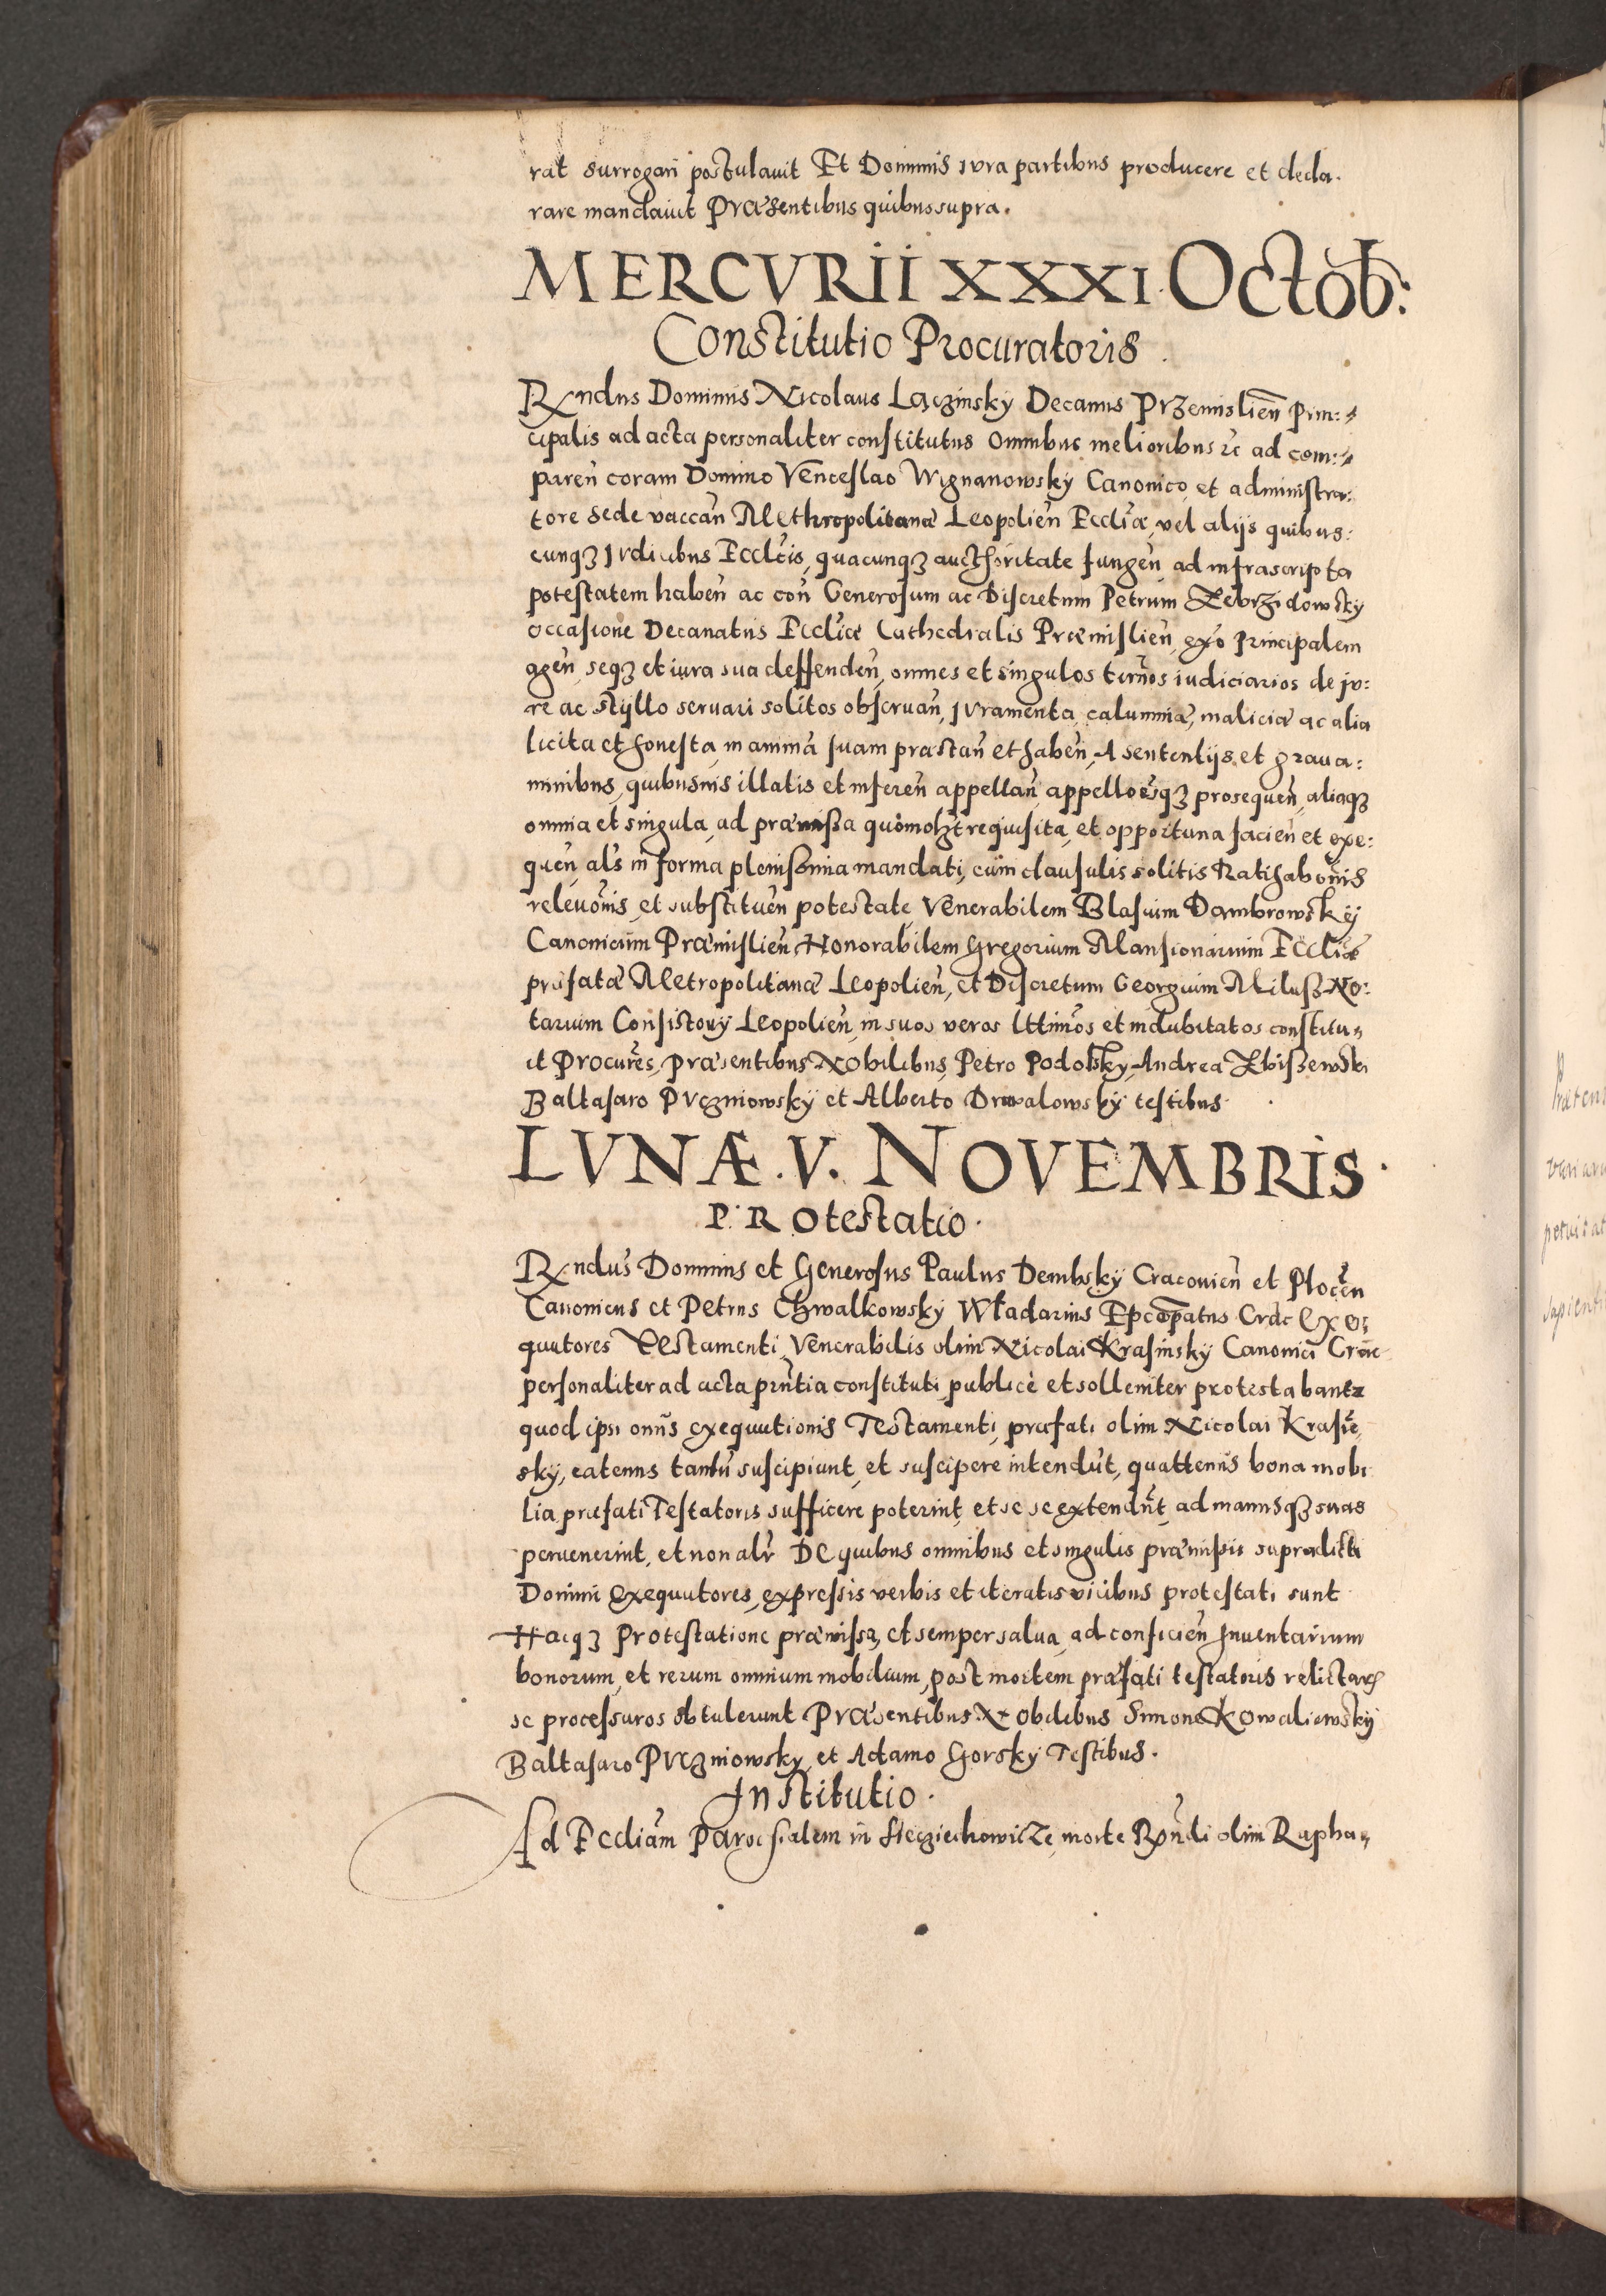 rat surrogari postulauit Et Dominus iura partibus producere et decla.
rare mandauit Præsentibus quibus supra.
MERCVRII XXXI Octob:
Constitutio Procuratoris.
Rndus Dominus Nicolaus Lączinsky Decanus Przemislien̄ prin:
cipalis ad acta personaliter constitutus Omnibus melioribus ꝛc ad com:
paren̄ coram Domino Venceslao Wignanowsky Canonico et administra:
tore sede vaccan̄ Methropolitanæ Leopolien̄ Eccliæ, vel alijs quibus:
cunqꝫ Iudicibus Ecclcis, quacunqꝫ authoritate fungen̄ ad infrascripta
potestatem haben̄ ac con̄ Generosum ac Discretum Petrum Zebrzidowsky
occasione Decanatus Eccliæ Cathedralis Præmislien̄, principalem
agen̄, seqꝫ et iura sua deffenden̄, omnes et singulos termos iudiciarios de iu:
re ac styllo seruari solitos obseruan̄, Iuramenta, calumniæ, maliciæ ac alia
licita et honesta, in animā suam præstan̄ et haben̄, A sententijs et graua:
minibus, quibusuis illatis et inferen̄ appellan̄, appelloēsqꝫ prosequen̄, aliaqꝫ
omnia et singula, ad præmissa requisita, et opportuna facien̄ et exe:
quen̄, als in forma plenissima mandati, cum clausulis solitis Ratihabōnis
releuōnis, et substituen̄ potestate Venerabilem Blasium Dambrowsky
Canonicum Præmislien̄, Honorabilem Gregorium Mansionarium Eccliæ
præfatæ Metropolitanæ Leopolien̄, et Discretum Georgium Milusz No:
tarium Consistorij Leopolien̄, in suos veros lttimos et indubitatos constitu,,
it Procures, præsentibus Nobilibus, Petro Podolsky, Andrea Zbiszewski
Baltasaro Pvczniowsky et Alberto Drwalowsky testibus.
LVNÆ. V. NOVEMBRIS.
PROtestatio.
Rndus Dominus et Generosus Paulus Dembsky Cracouien̄ et Plocen̄
Canonicus et Petrus Chwalkowsky Władarius Epcopatus Crac Exe:
quutores Testamenti, Venerabilis olim Nicolai Krasinsky Canonici Crac
personaliter ad acta prntia constituti publicè et sollemniter protestabantr
quod ipsi onus exequutionis Testamenti, præfati olim Nicolai Krasiē
sky, eatenus tantū suscipiunt, et suscipere intendūt, quattenus bona mobi
lia præfati Testatoris sufficere poterint, et se se extendūt, ad manusqꝫ suas
peruenerint, et non alr De quibus omnibus et singulis præmissis supradicti
Domini exequutores, expressis verbis et iteratis vicibus protestati sunt
Hacqꝫ Protestatione præmissa, et semper salua, ad conficien̄ Inuentarium
bonorum, et rerum omnium mobilium, post mortem præfati testatoris relictarꝫ
se processuros obtulerunt Præsentibus Nobilibus Simone Kowaliewsky
Baltasaro Pvczniowsky, et Adamo Gorsky Testibus.
Institutio.
Ad Eccliam Parochialem in Sieciechowicze, morte Rndi olim Rapha,,